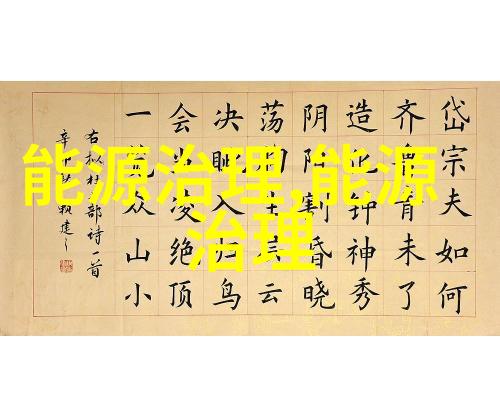 岱宗夫如何
齐鲁青未了
造化钟神秀
阴阳割昏晓
荡胸生云
决眦入归鸟
会当凌绝顶
一览众山小
右拟杜部诗一首
能源治理,能源
治理